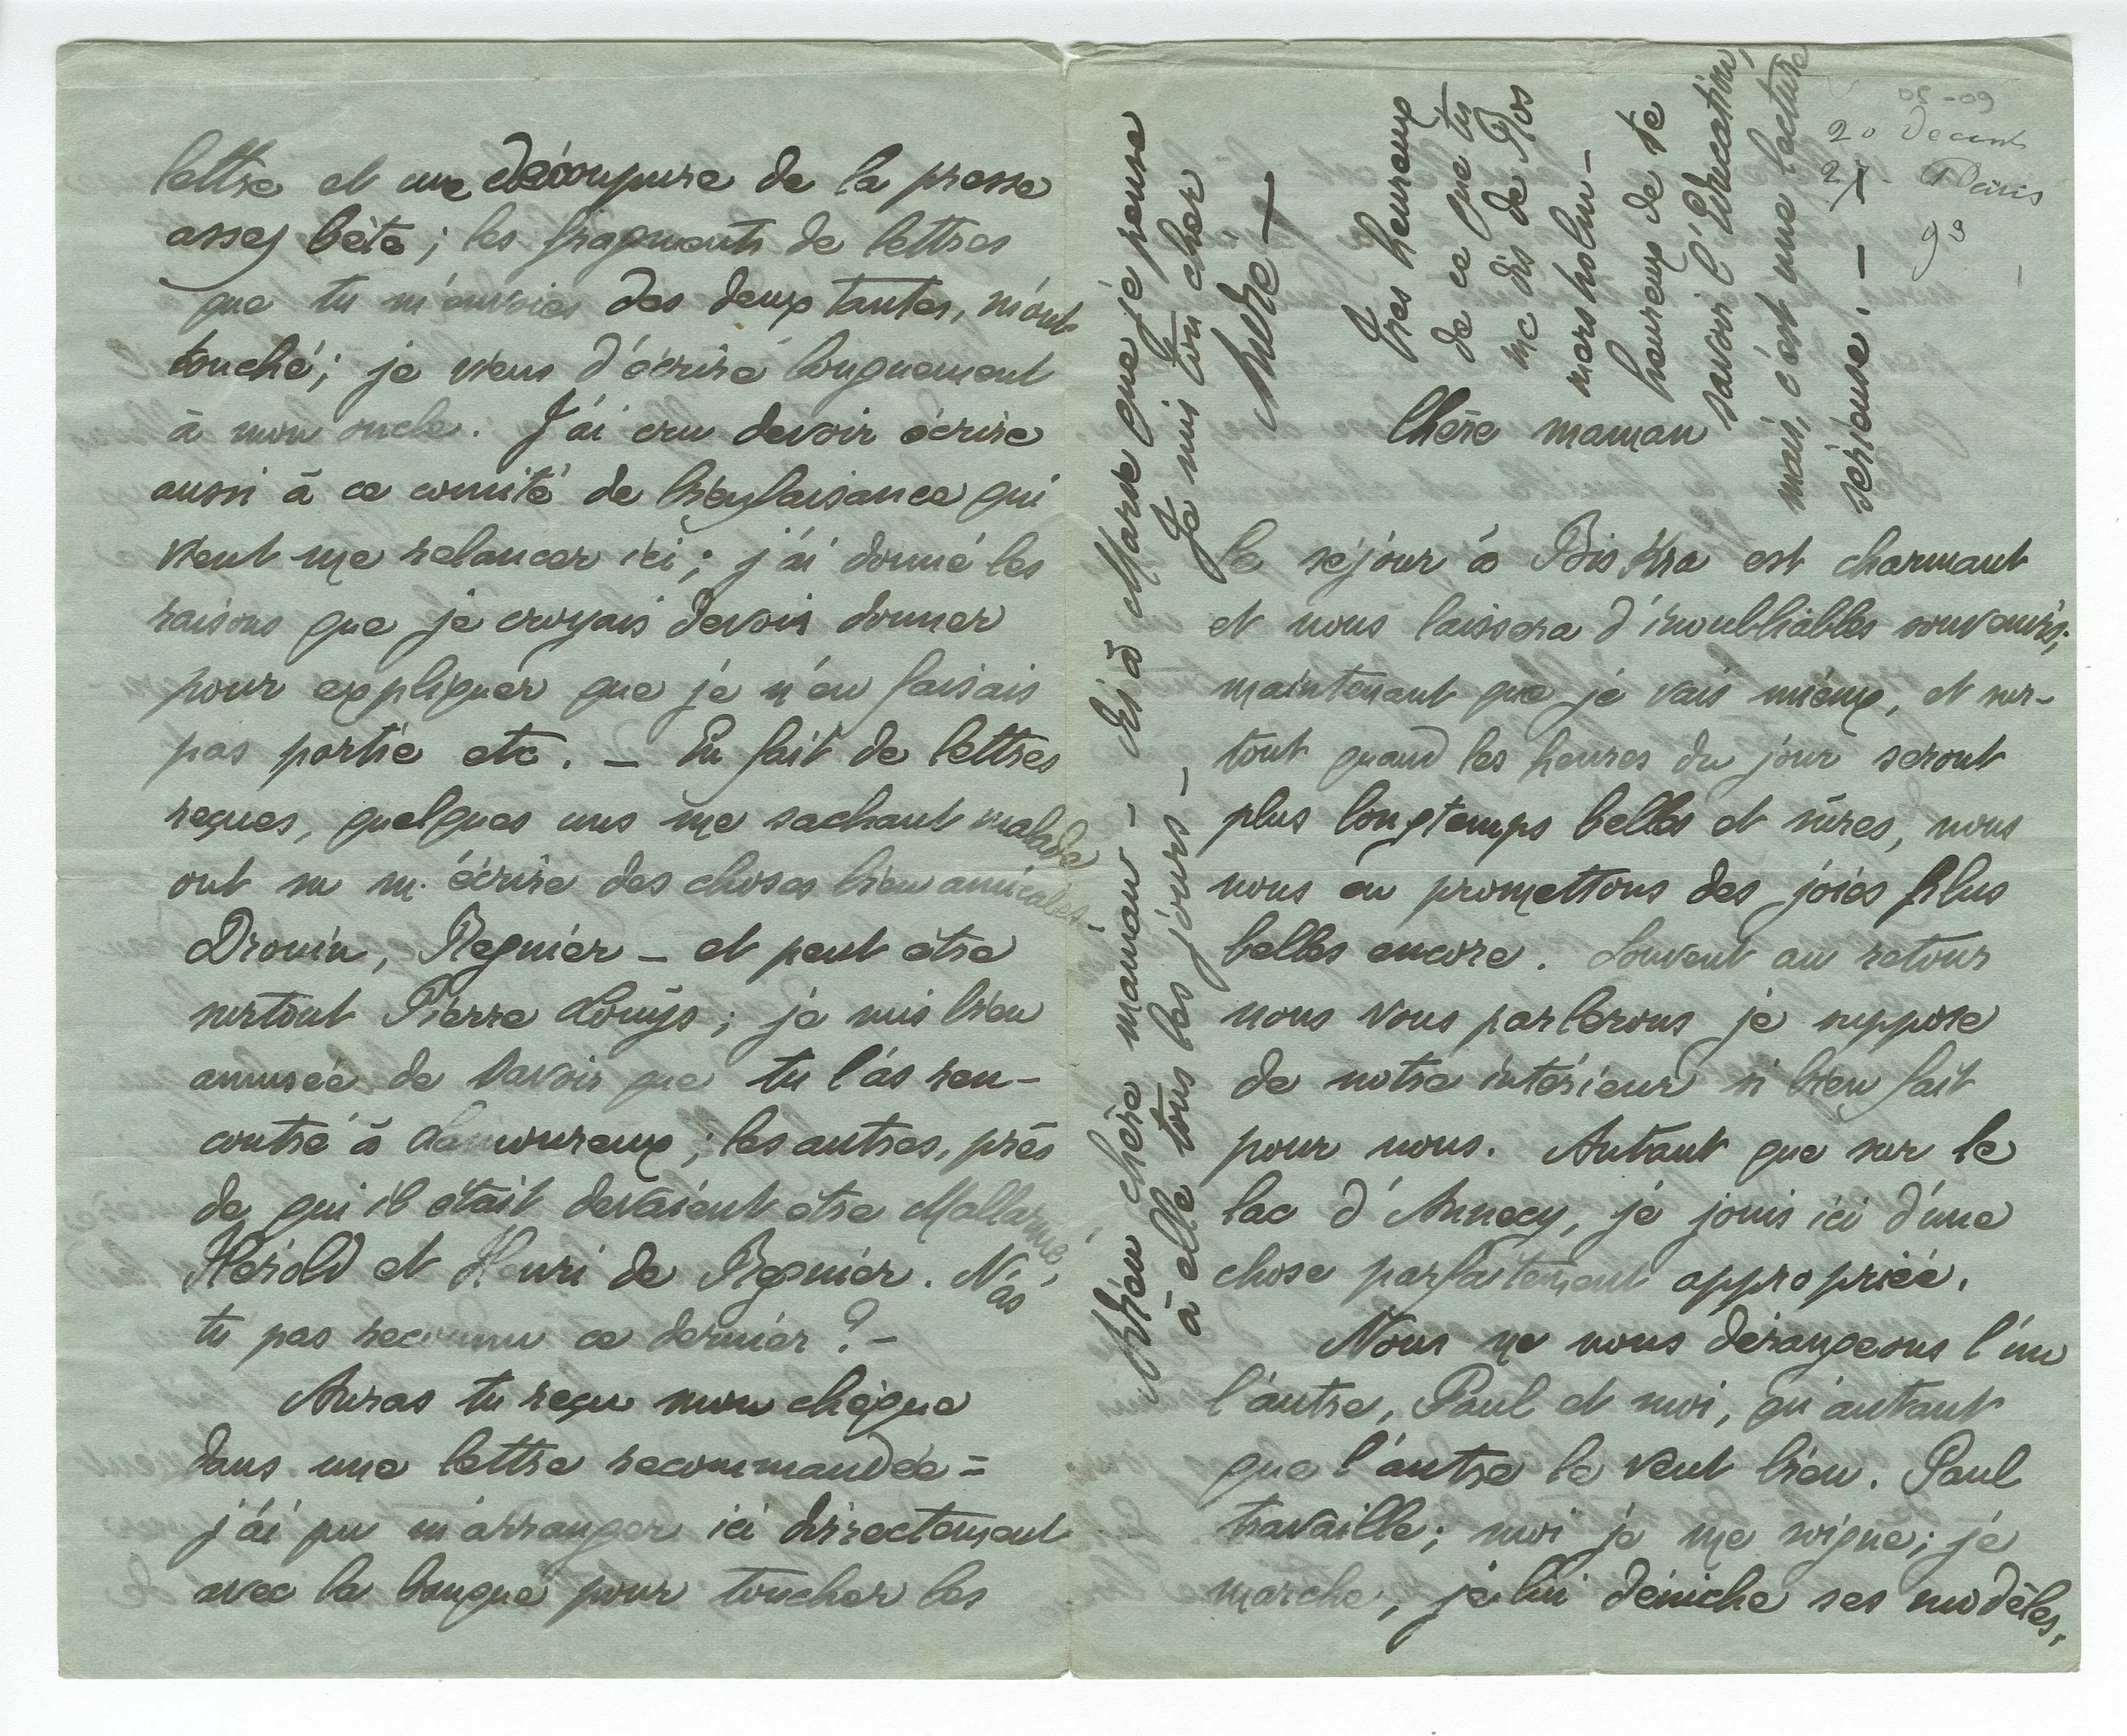 lettre et une découpure de la presse
assez bête ; les fragments de lettres
que tu m'envoies des deux tantes, m'ont
touché ; je viens d'écrire longuement
à mon oncle. J'ai cru devoir écrire
aussi à ce comité de bienfaisance qui
vient me relancer ici ; j'ai donné les
raisons que je croyais devoir donner
pour expliquer que je n'en faisais
pas partie etc. — En fait de lettres
reçues, quelques uns me sachant malade
ont su m'écrire des choses bien amicales —
Drouin, Regnier — et peut être
surtout Pierre Louÿs ; je suis bien
amusée de savoir que tu l'as ren-
contré à Lamoureux ; les autres, près
de qui il était devaient être Mallarmé,
Hérold et Henri de Regnier. N'as
tu pas reconnu ce dernier ? —
Auras tu reçu mon chèque
dans une lettre recommandée =
j'ai pu m'arranger ici directement
avec la banque pour toucher les
08-09
20 Decemb
27. Paris
93
Chère maman
Le séjour à Biskra est charmant
et nous laissera d'inoubliables souvenirs ;
maintenant que je vais mieux, et sur-
tout quand les heures du jour seront
plus longtemps belles et sûres, nous
nous en promettons des joies plus
belles encore. Souvent au retour
nous vous parlerons je suppose
de notre intérieur si bien fait
pour nous. Autant que sur le
lac d'Annecy, je jouis ici d'une
chose parfaitement appropriée.
Nous ne nous dérangeons l'un
l'autre, Paul et moi, qu'autant
que l'autre le veut bien. Paul
travaille ; moi je me soigne ; je
marche, je lui déniche ses modèles,
Adieu chère maman — dis à Marie que je pense
à elle tous les jours — Je suis ton cher
André —
Très heureux
de ce que tu
me dis de Ros
mersholm —
heureux de te
savoir l'Education,
mais, c'est une lecture
serieuse. — —